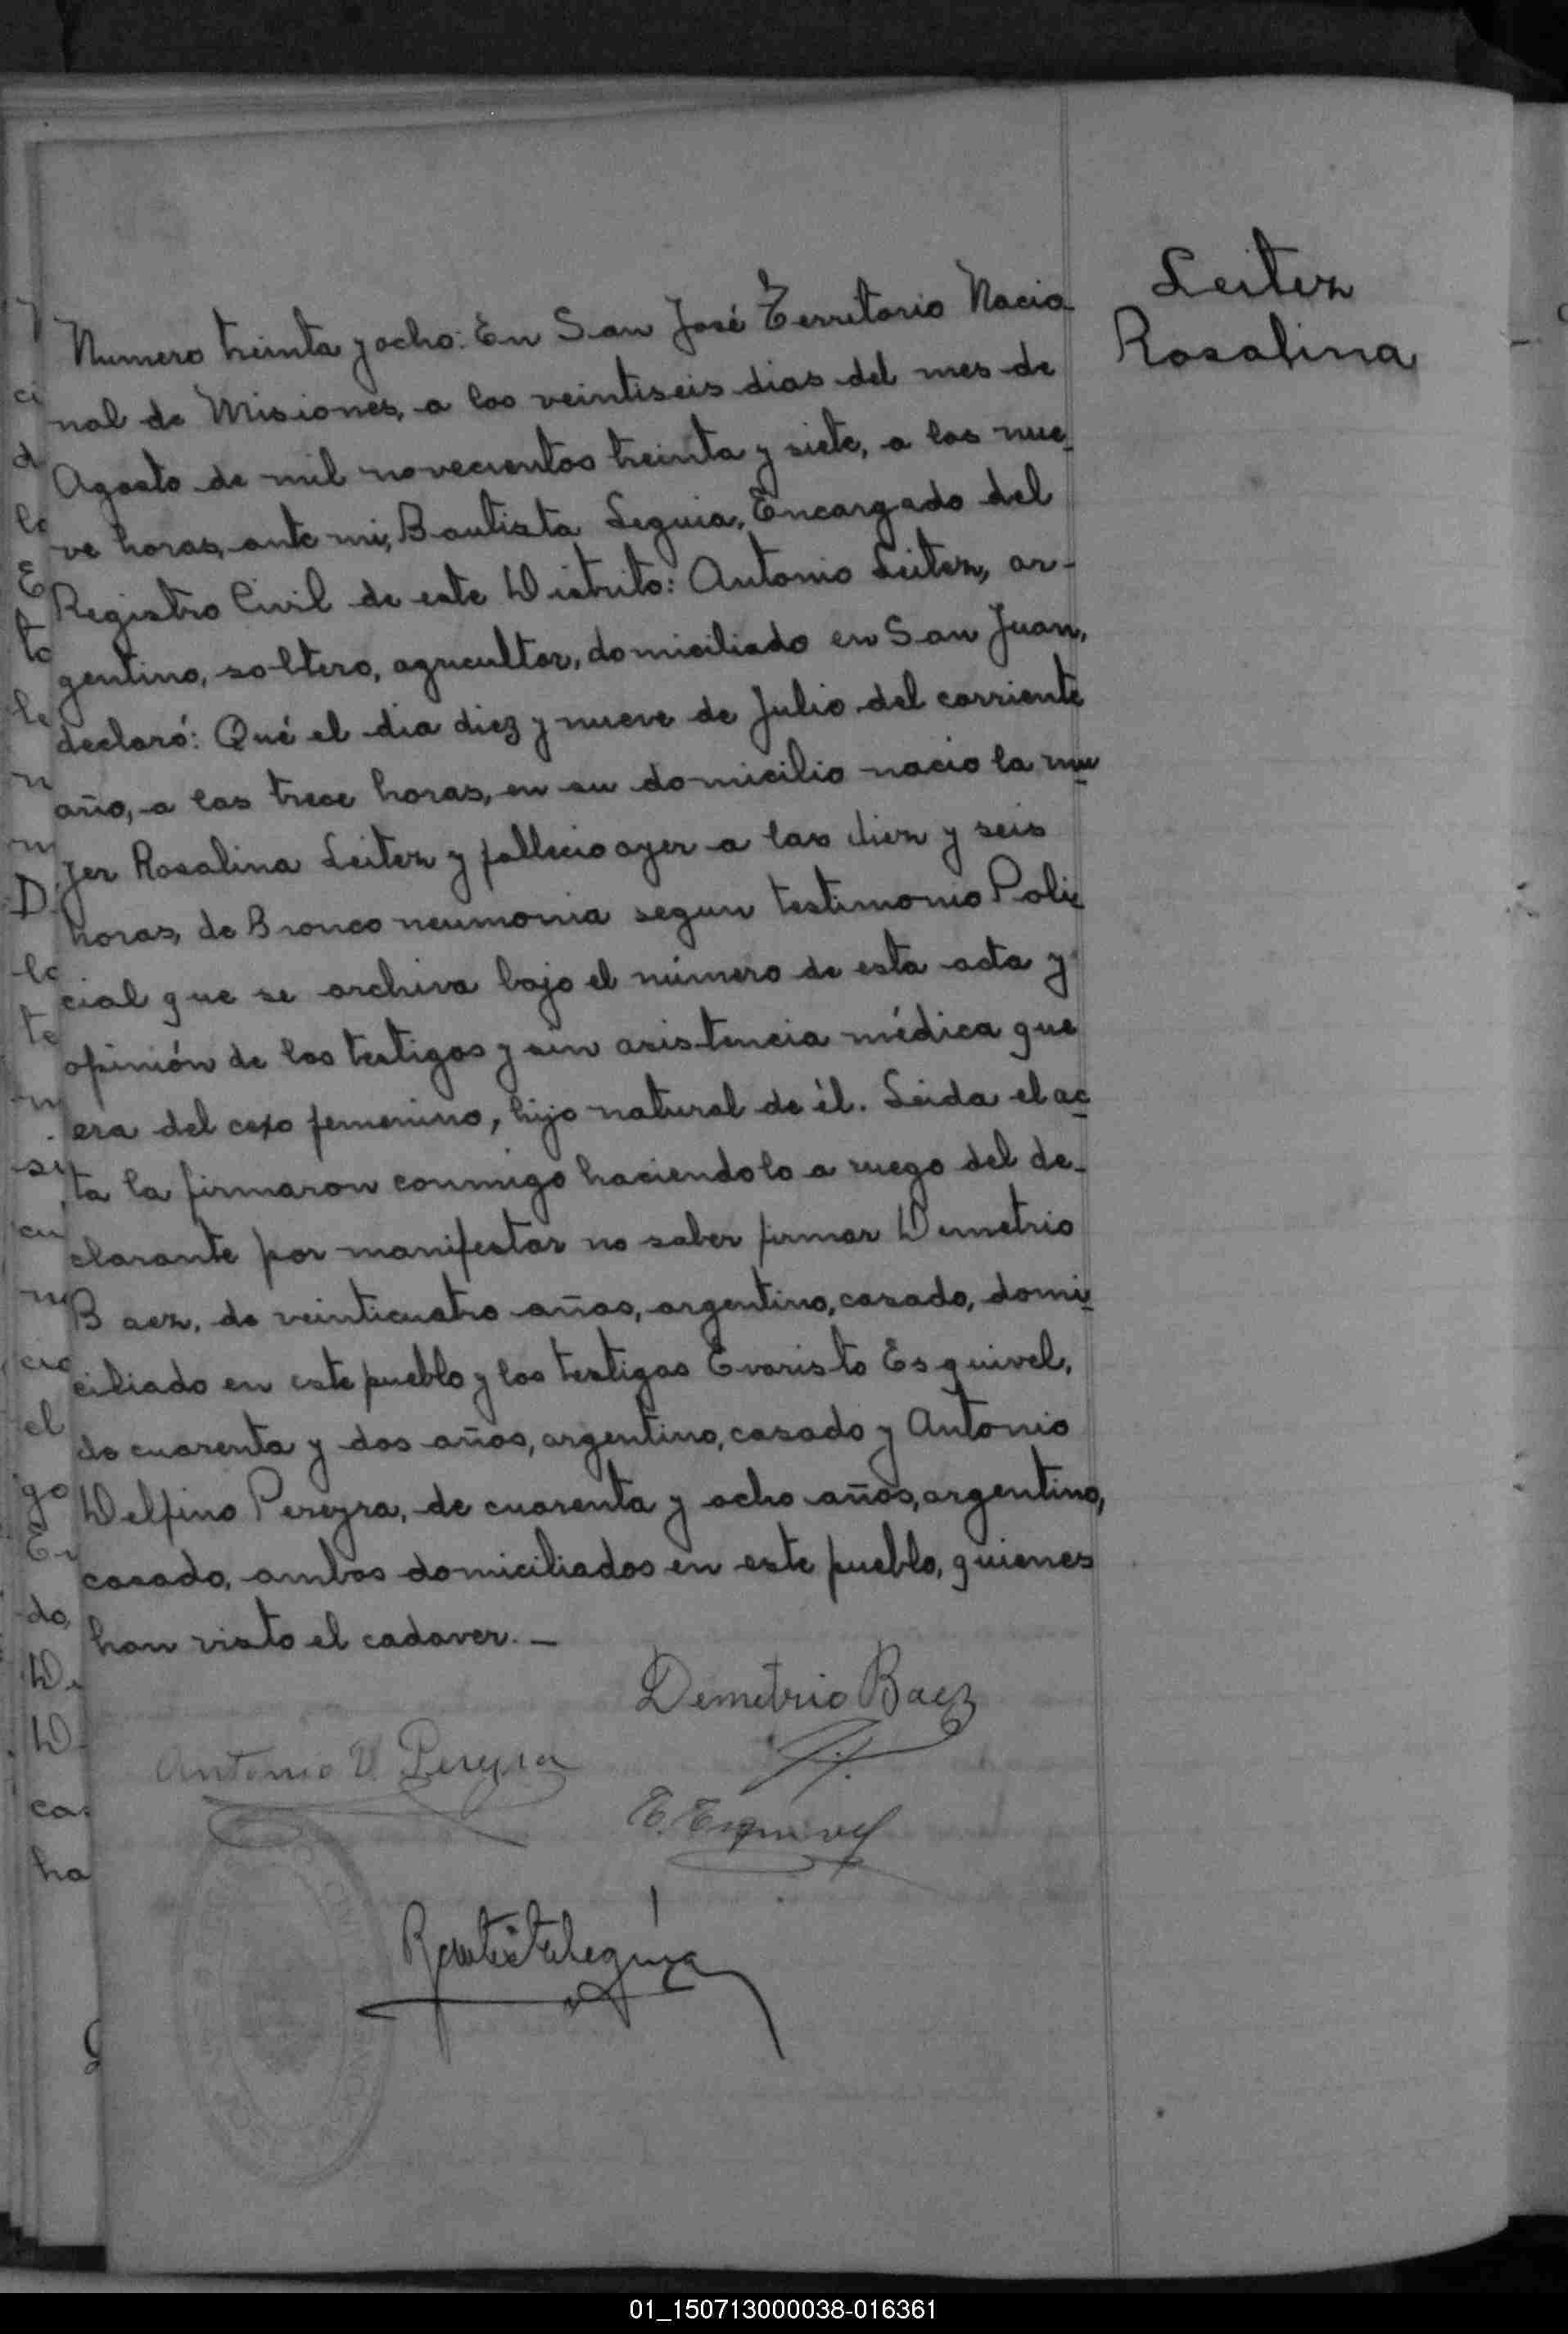 Leitez
Rosalina
Numero treinta y ocho: En San José Territorio Nacio
nal de Misiones, a los veintiseis dias del mes de
Agosto de mil novecientos treinta y siete, a las nue
ve horas, ante mi, Bautista Leguia, Encargado del
Registro Civil de este Distrito: Antonio Leitez, ar-
gentino, soltero, agricultor, domiciliado en San Juan,
declaró: Qué el dia diez y nueve de Julio del corriente
año, a las trece horas, en su domicilio nacio la mu
jer Rosalina Leitez y fallecio ayer a las diez y seis
horas, de Bronco neumonia segun testimonio Poli
cial que se archiva bajo el número de esta acta y
opinión de los testigos y sin asistencia médica que
era del cexo femenino, hijo natural de él. Leida el ac
ta la firmaron conmigo haciendolo a ruego del de-
clarante por manifestar no saber firmar Demetrio
Baez, de veinticuatro años, argentino, casado, domi
ciliado en este pueblo y los testigos Evaristo Esquivel,
de cuarenta y dos años, argentino, casado y Antonio
Delfino Pereyra, de cuarenta y ocho años, argentino,
casado, ambos domiciliados en este pueblo, quienes
han visto el cadaver. —
Demetrio Baez
Antonio D. Pereyra
E. Esquivel
Bautista Leguia
01_150713000038-016361